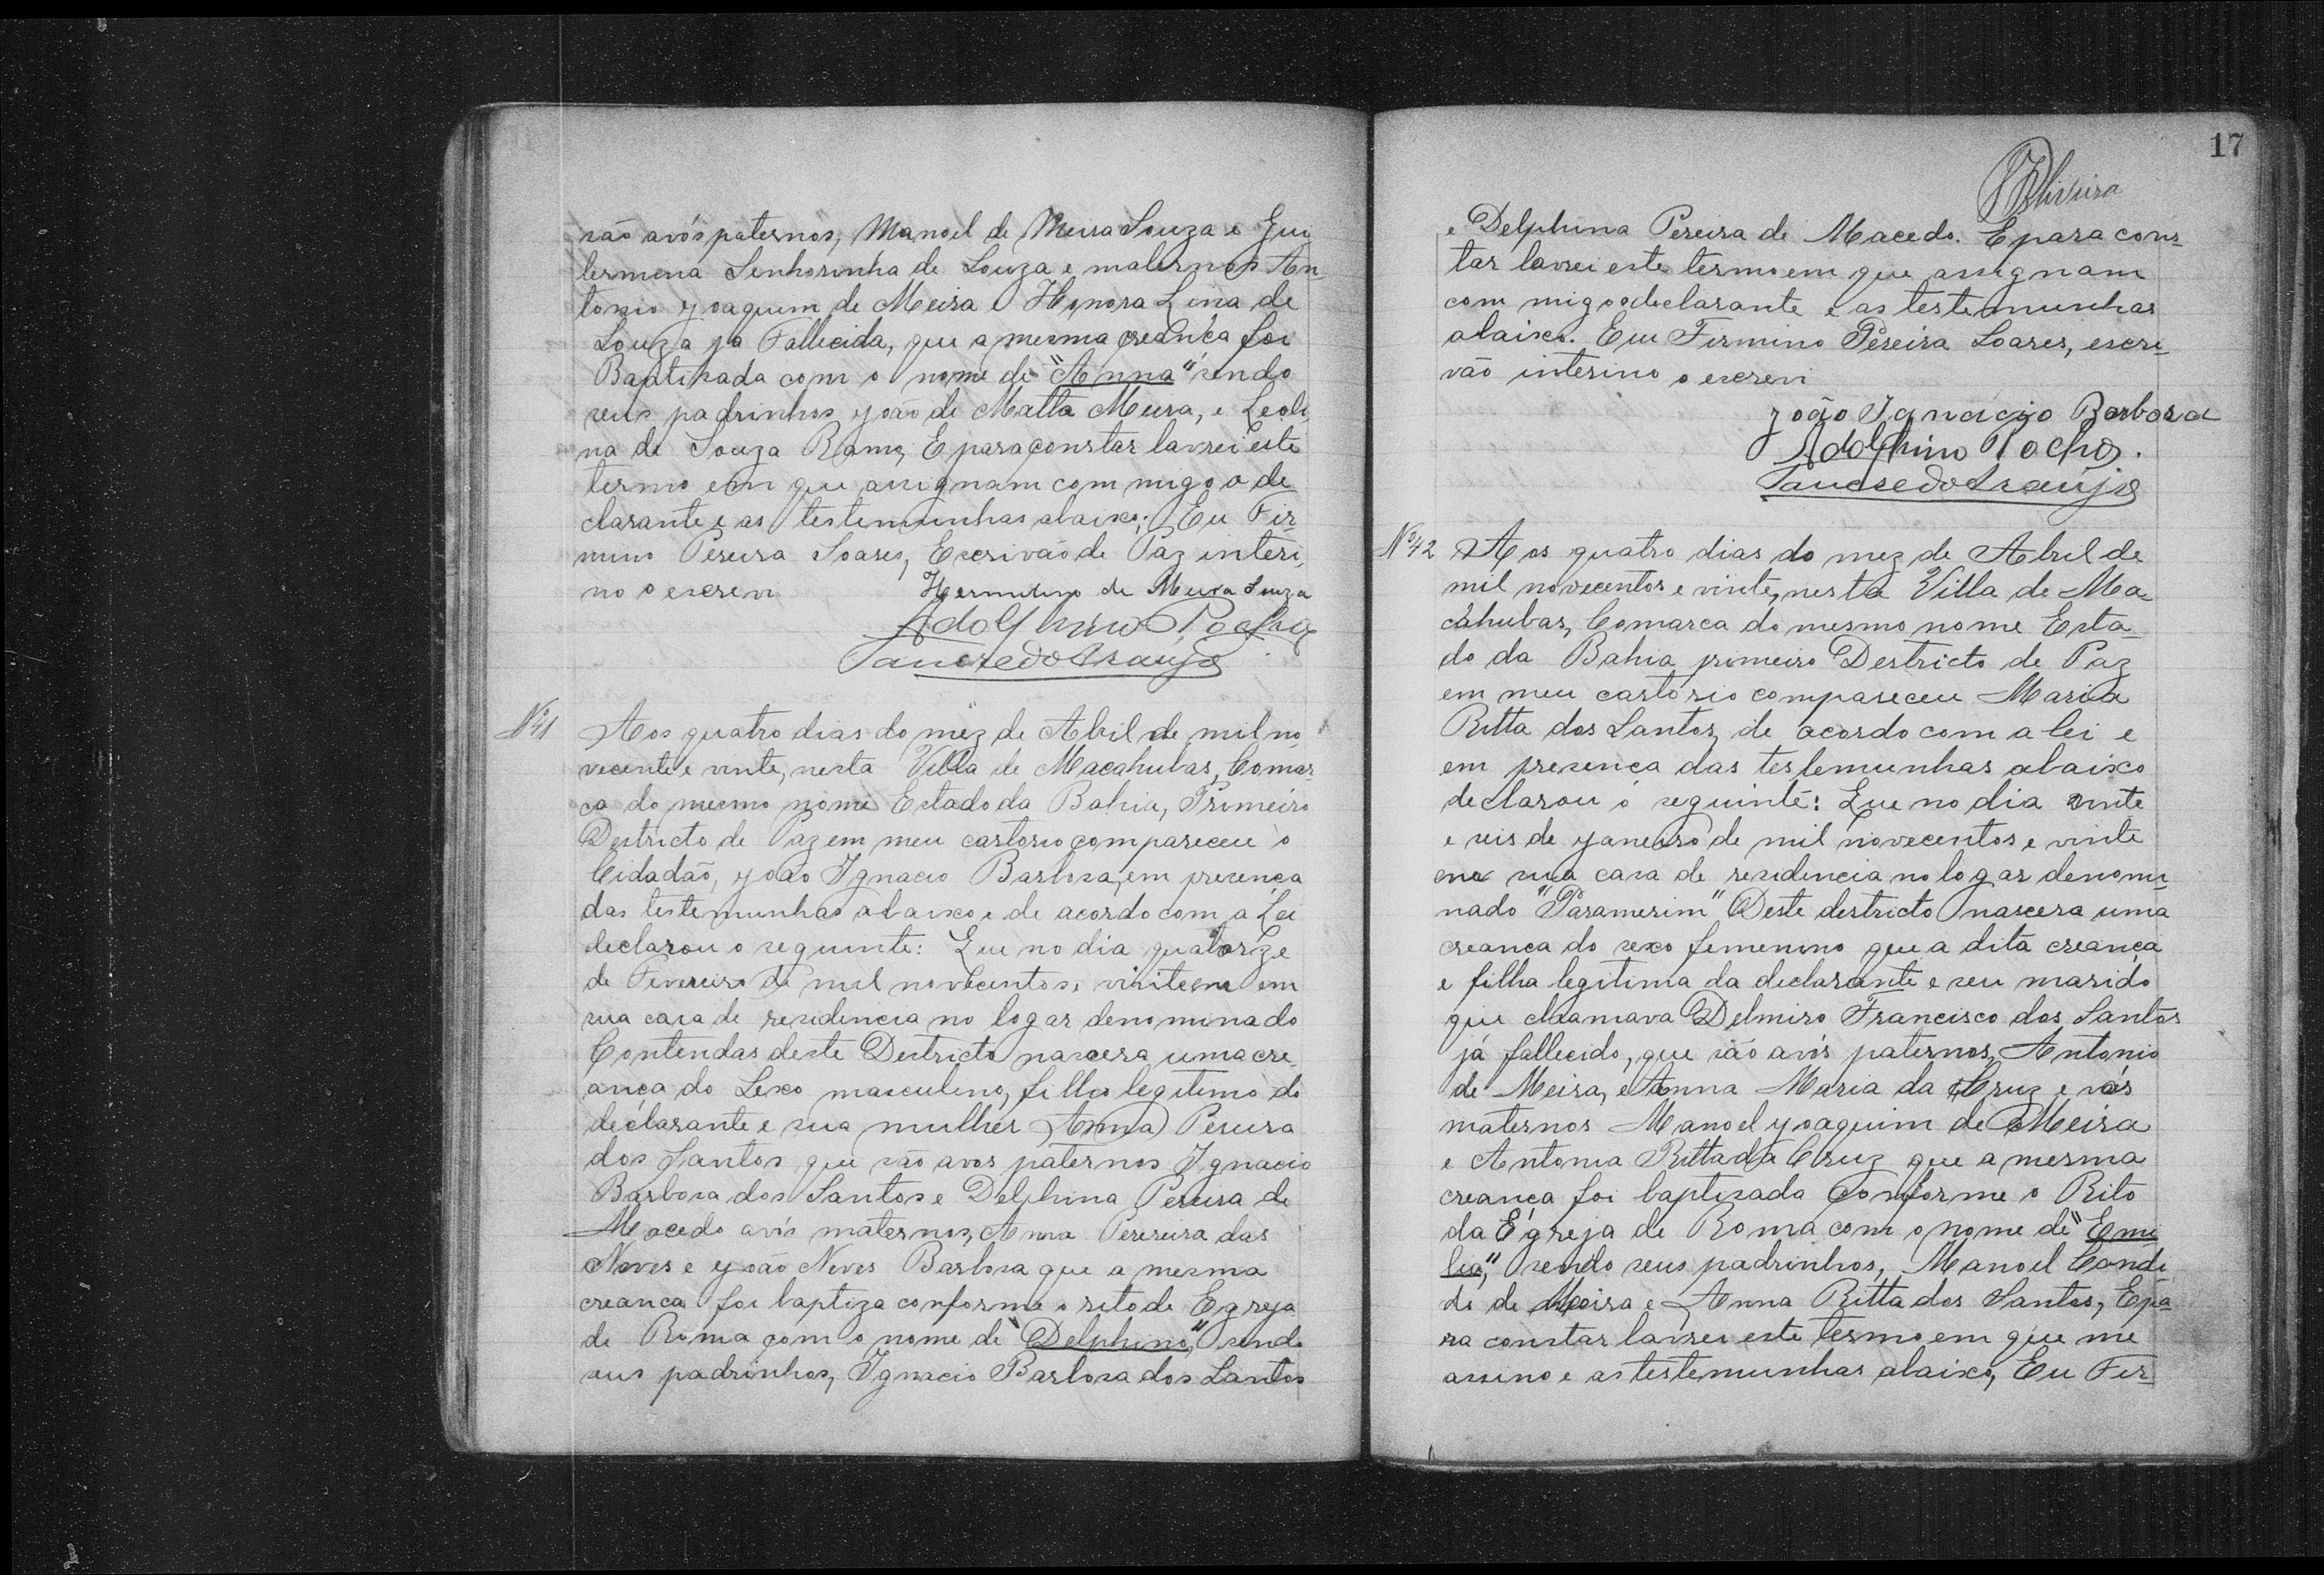 são avós paternos, Manoel de Meira Souza e Gui
lermena Senhorinha de Souza e maternos An-
tonio Joaquim de Meira e Honora Lina de
Souza ja Fallecida, que a mesma creança foi
Baptisada com o nome de "Anna" sendo
seus padrinhos João de Matta Meira, e Leoli
na de Souza Ramo, E para constar lavrei este
termo em que assignam commigo o de
clarante e as testemunhas abaixo; Eu Fir-
mino Pereira Soares, Escrivão de Paz interi,
no o escrevi
Hermelino de Meira Souza
Adolphino Rocha
Tancredo Araujo
Nº 41
Aos quatro dias do mez de Abril de mil no,
vecente e vinte, nesta Villa de Macahubas, Comar-
ca do mesmo nome Estado da Bahia, Primeiro
Destricto de Paz em meu cartorio compareceu o
Cidadão, João Ignacio Barbosa, em presença
das testemunhas abaixo e de acordo com a Lei
declarou o seguinte: Que no dia quatorze
de Fevereiro de mil novecentos e vinte em em
sua casa de residencia no logar denominado
Contendas deste Destricto nascera uma cre
ança do Sexo masculino, filho legitimo do
declarante e sua mulher Anna Pereira
dos Santos que são avos paternos Ignacio
Barbosa dos Santos e Delphina Pereira de
Macedo avós maternos, Anna Perereira das
Neves e João Neves Barbosa que a mesma
creanca foi baptiza conforme o rito de Egreja
de Roma com o nome de "Delphino," sendo
seus padrinhos, Ignacio Barbosa dos Santos
17
Oliveira
e Delphina Pereira de Macedo. E para cons-
tar lavrei este termo em que assignam
com migo o declarante e as testemunhas
abaixo. Eu Firmino Pereira Soares, escri-
vão interino o escrevi
João Ignacio Barbosa
Adolphino Rocha.
Tancredo Araujo
Nº 42
Aos quatro dias do mez de Abril de
mil novecentos e vinte, nesta Villa de Ma
cahubas, Comarca do mesmo nome Esta
do da Bahia primeiro Destricto de Paz
em meu cartório compareceu Maria
Ritta dos Santos, de acordo com a lei e
em presença das testemunhas abaixo
declarou o seguinte: Que no dia vinte
e seis de Janeiro de mil novecentos e vinte
em sua casa de residencia no logar denomi-
nado "Paramerim" Deste destricto nascera uma
creança do sexo femenino que a dita creança
e filha legitima da declarante e seu marido
que chamava Delmiro Francisco dos Santos
já fallecido, que são avós paternos, Antonio
de Meira, e Anna Maria da Cruz e vós
maternos Manoel Joaquim de Meira
e Antonia Ritta da Cruz que a mesma
creança foi baptisada conforme o Rito
da Egreja de Roma com o nome de "Eme
lia," sendo seus padrinhos, Manoel Candi
do de Meira e Anna Ritta dos Santos, E pa-
ra constar lavrei este termo em que me
assino e as testemunhas abaixo, Eu Fir-